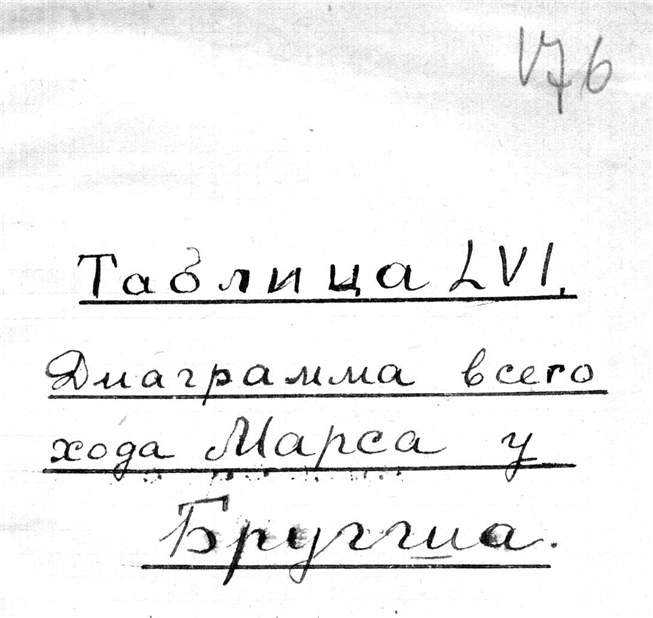 V76
Таблица LVI.
Диаграмма всего
хода Марса у
Бруггиа.